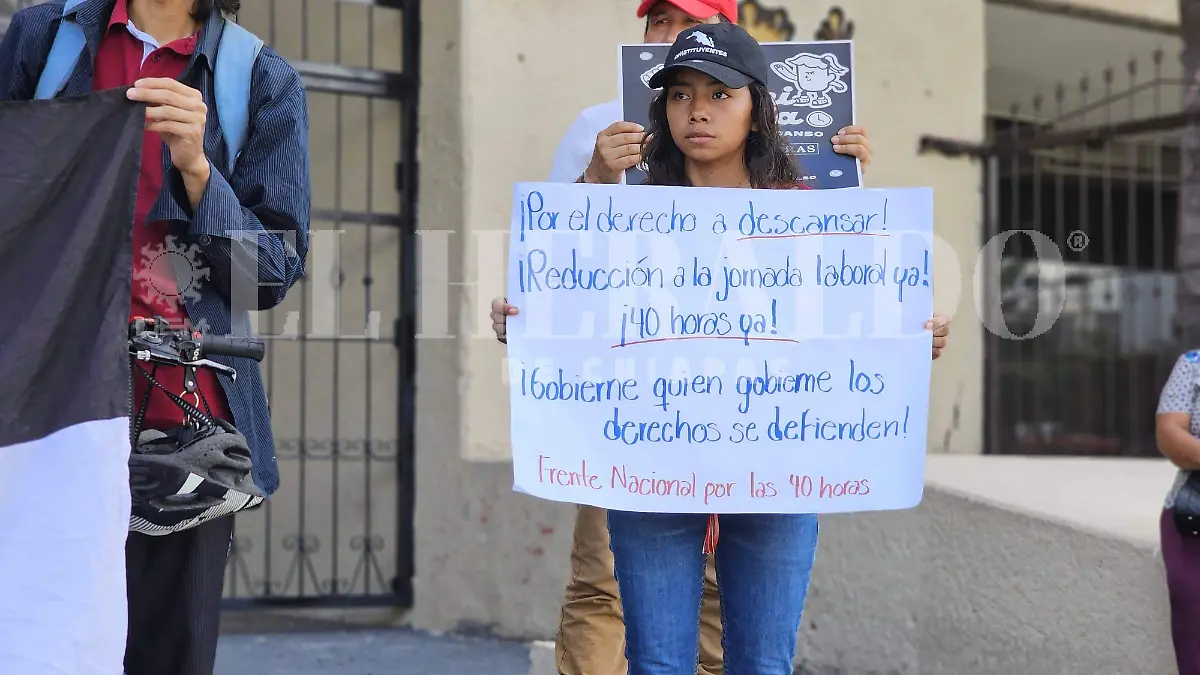 CONSTITUYENTES
¡Por el derecho a descansar!
¡Reducción a la jornada laboral ya!
¡40 horas ya!
¡Gobierne quien gobierne los
derechos se defienden!
Frente Nacional por las 40 horas
EL HERALDO ®
DE CHIAPAS